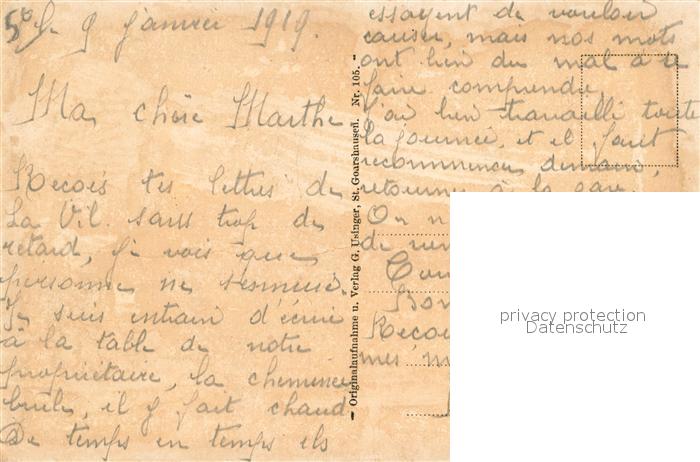 5º/ le 9 janvier 1919.
Ma chère Marthe
Recois tes lettres de
La Vil. sans trop de
retard, je vois que
personne ne s'ennuie.
Je suis entrain d'écrire
à la table de notre
propriétaire, la cheminée
brule, il y fait chaud
De temps en temps ils
essayent de vouloir
causer, mais nos mots
ont bien du mal à se
faire comprendre,
j'ai bien travaillé toute
la journée, et il faut
recommencer demain,
retourner à la gare.
On n
de
Bon
Recois
mes
— Originalaufnahme u. Verlag G. Usinger, St. Goarshausen. Nr. 105. —
privacy protection
Datenschutz